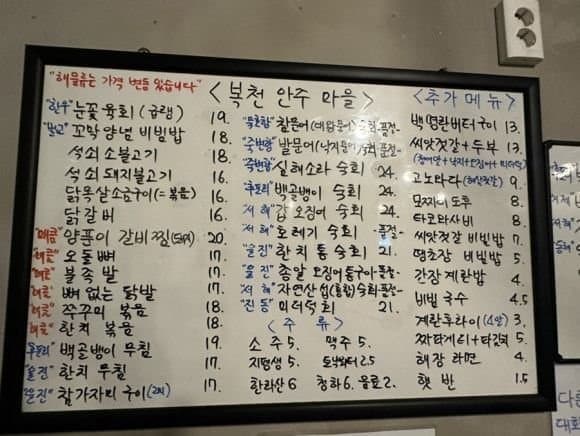 "해물류는 가격 변동 있습니다"
"한우"눈꽃 육회 (곱랭) 19.
"벌교"꼬막 양념 비빔밥 18.
석쇠 소불고기 18.
석쇠 돼지불고기 16.
닭목살 소금구이(=볶음) 16.
닭갈비 16.
"매콤"양푼이 갈비찜(돼지) 20.
"매콤"오돌뼈 17.
"매콤"불족발 17.
"매콤"뼈 없는 닭발 17.
"매콤"쭈꾸미 볶음 18.
"매콤"한치 볶음 18.
"후포리"백골뱅이 무침 19.
"울진"한치 무침 17.
"울진"참가자미 구이(2마리) 17.
<복천 안주 마을>
"묵호항"찰문어(대왕문어)숙회-품절-
"주변항"발문어(낙지문어)숙회-품절-
"주변항"실해소라 숙회 24.
"후포리"백골뱅이 숙회 24.
"서해"갑오징어 숙회 24.
"서해"호래기 숙회 -품절-
"울진"한치 통숙회 21.
"울진"총알 오징어 통구이-품절-
"서해"자연산섭(홍합)숙회-품절-
"진동"미더덕회 21.
<주류>
소주 5. 맥주 5.
지평생 5. 토닉워터 2.5
한라산 6 청하 6. 음료 2.
<추가 메뉴>
백명란버터구이 13.
씨앗젓갈+두부 13.
(청어알+낙지+오징어+미더덕)
고노와다(해삼젓갈) 9.
모찌이도후 8.
타코와사비 8.
씨앗젓갈 비빔밥 7.
땡초장 비빔밥 5.
간장계란밥 4.
비빔국수 4.5
계란후라이(4알) 3.
짜파게티+타김치 5.
해장라면 4.
햇반 1.5
다른
대회